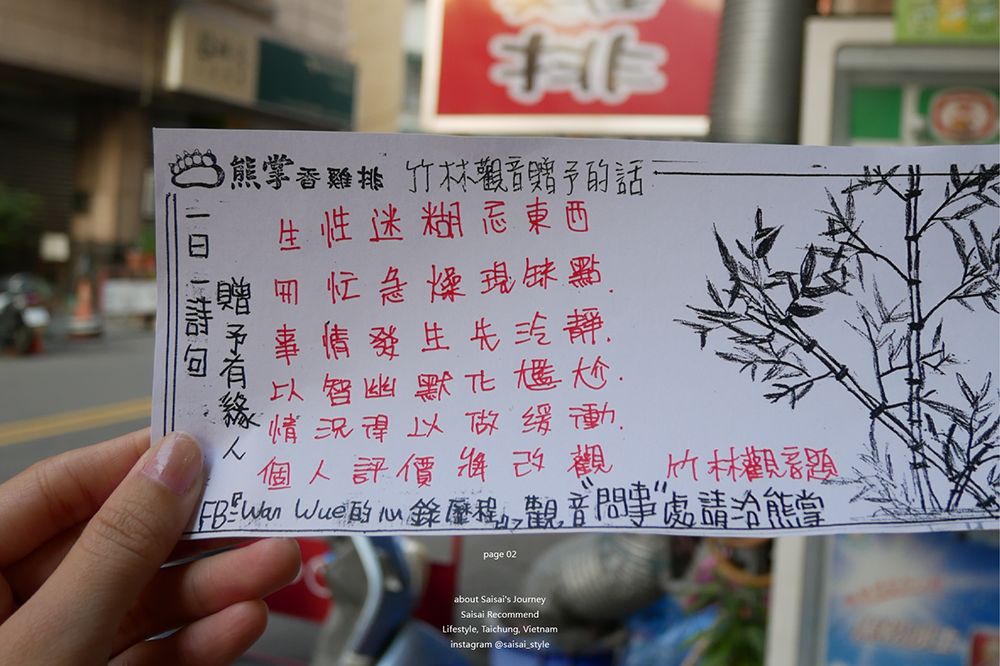 排
熊掌香雞排 竹林觀音贈予的話
一日一詩句
贈予有緣人
生性迷糊忘東西
冊忙急燥現缺點.
事情發生先冷靜.
以智幽默化尷尬.
情況得以做緩衝.
個人評價將改觀
竹林觀音題
FB=Wan Wue的心錄歷程 觀音"問事"處請洽熊掌
page 02
about Saisai's Journey
Saisai Recommend
Lifestyle, Taichung, Vietnam
instagram @saisai_style